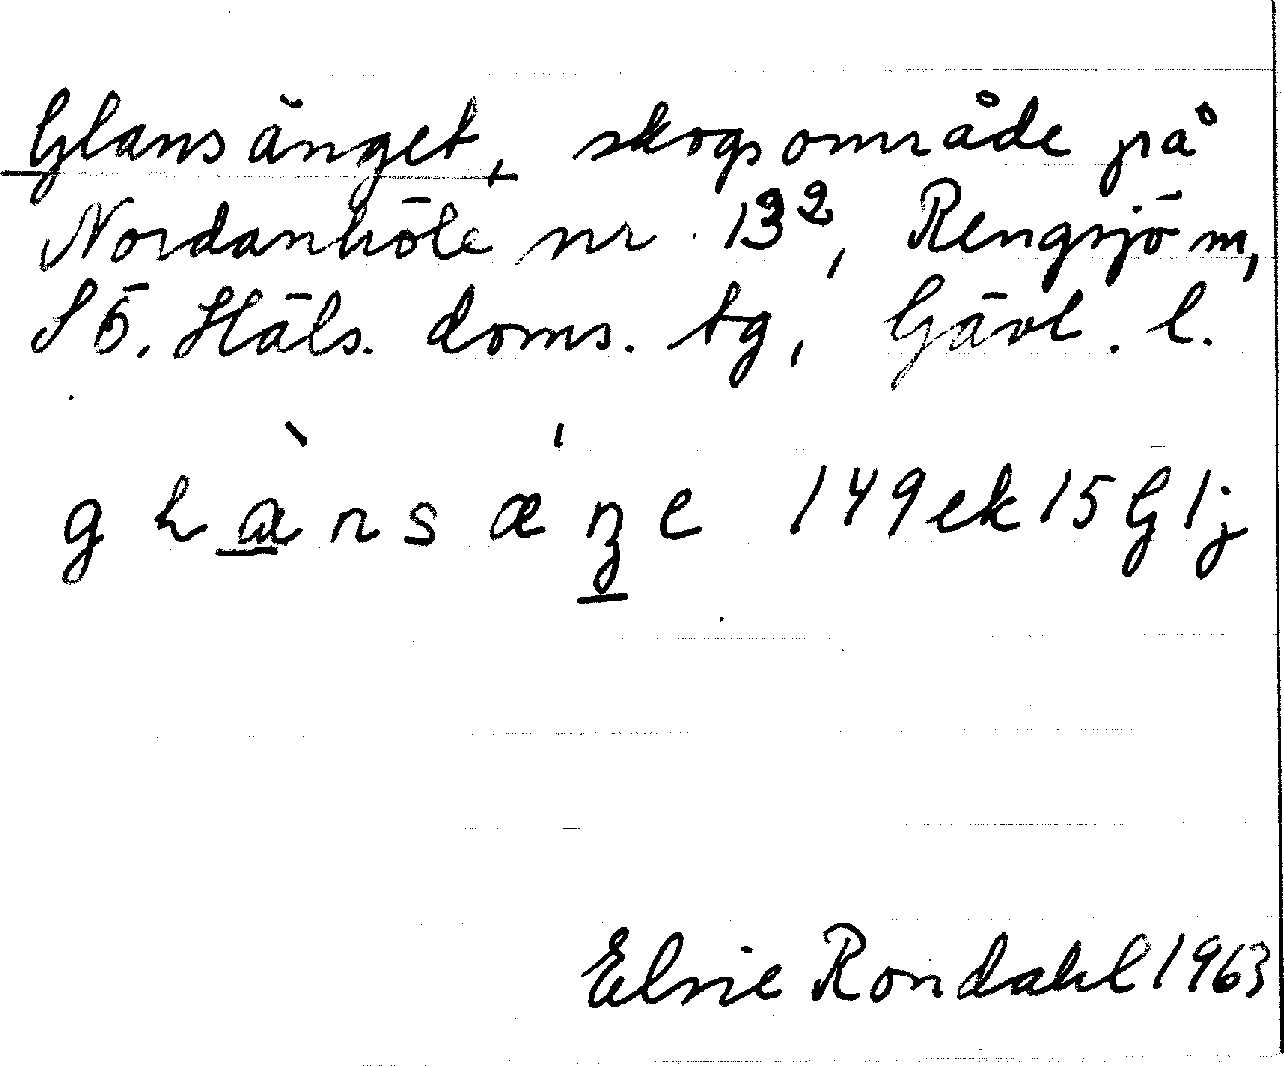 Glansänget, skogsområde på
Nordanhöle nr 13², Rengsjö sn,
SÖ. Häls. doms. tg, Gävl. l.
149ek15G1j
Elsie Rondahl 1963